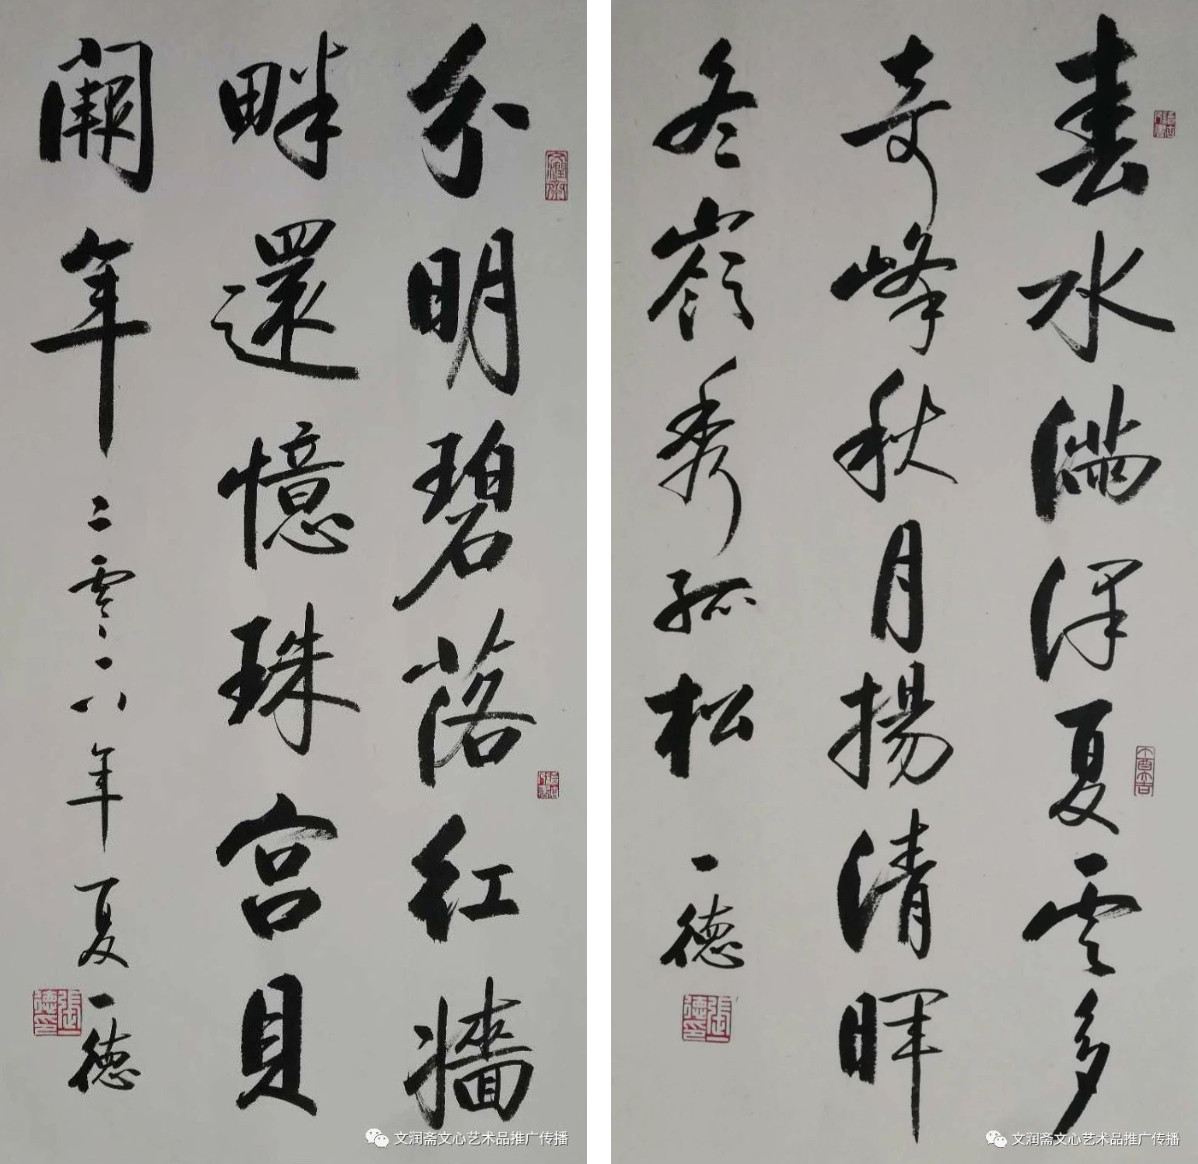 分明碧落红牆
畔還憶珠宫貝
闕年
二零一八年夏一德
張一德印
文润斋文心艺术品推广传播
春水满泽夏雲多
奇峰秋月揚清暉
冬嶺秀孤松
一德
張一德印
文润斋文心艺术品推广传播